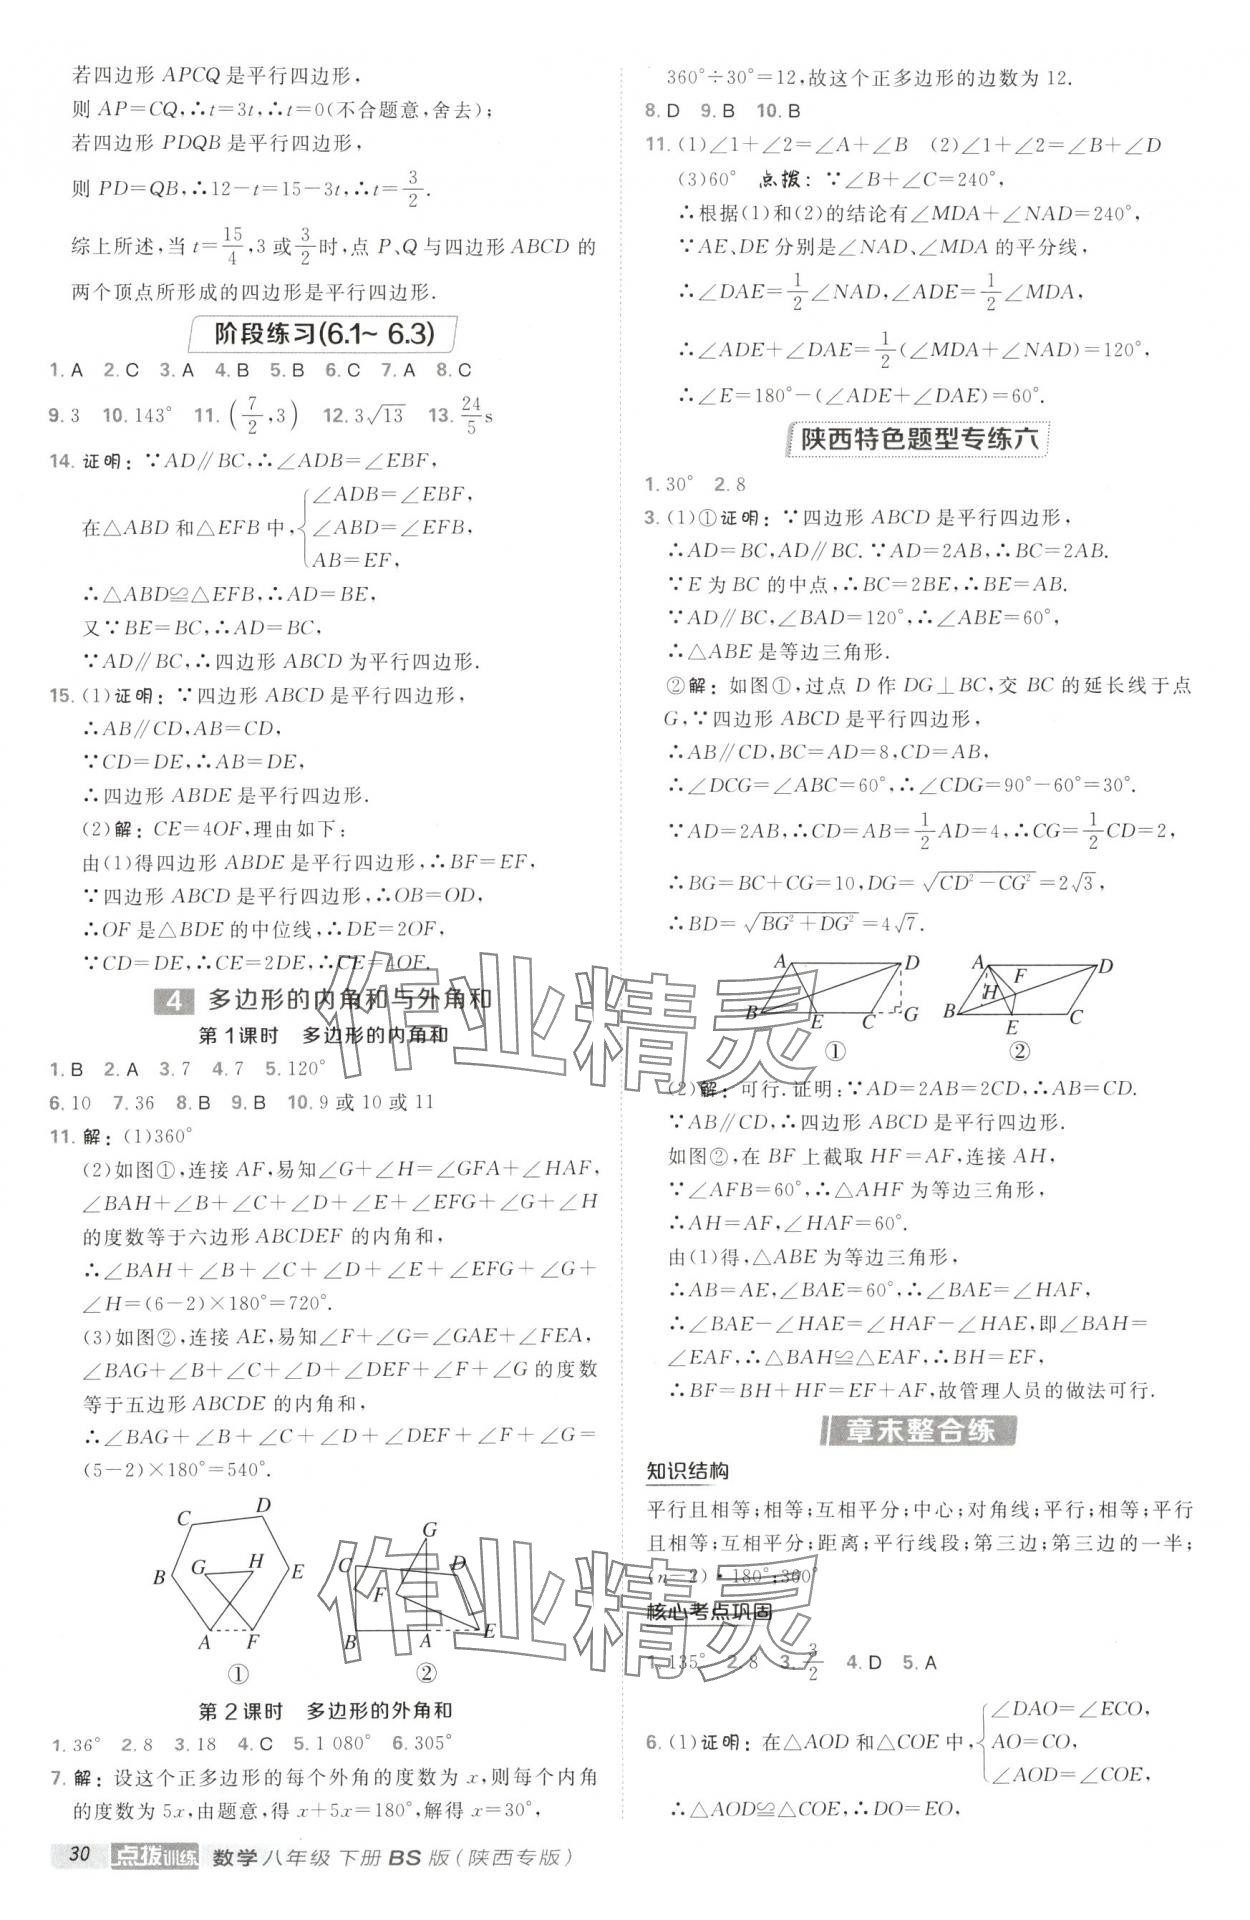 若四边形 APCQ 是平行四边形，
则 AP=CQ，∴t=3t，∴t=0(不合题意，舍去)；
若四边形 PDQB 是平行四边形，
则 PD=QB，∴12-t=15-3t，∴t=3/2.
综上所述，当 t=15/4，3 或 3/2 时，点 P、Q 与四边形 ABCD 的
两个顶点所形成的四边形是平行四边形.
阶段练习(6.1~ 6.3)
1. A 2. C 3. A 4. B 5. B 6. C 7. A 8. C
9. 3 10. 143° 11. (7/2，3) 12. 3√13 13. 24/5 s
14. 证明：∵AD∥BC，∴∠ADB=∠EBF，
在△ABD 和△EFB 中，{∠ADB=∠EBF，
∠ABD=∠EFB，
AB=EF，
∴△ABD≌△EFB，∴AD=BE，
又∵BE=BC，∴AD=BC，
∵AD∥BC，∴四边形 ABCD 为平行四边形.
15. (1)证明：∵四边形 ABCD 是平行四边形，
∴AB∥CD，AB=CD，
∵CD=DE，∴AB=DE，
∴四边形 ABDE 是平行四边形.
(2)解：CE=4OF，理由如下：
由(1)得四边形 ABDE 是平行四边形，∴BF=EF，
∵四边形 ABCD 是平行四边形，∴OB=OD，
∴OF 是△BDE 的中位线，∴DE=2OF，
∵CD=DE，∴CE=2DE，∴CE=4OF.
4 多边形的内角和与外角和
第1课时 多边形的内角和
1. B 2. A 3. 7 4. 7 5. 120°
6. 10 7. 36 8. B 9. B 10. 9 或 10 或 11
11. 解：(1)360°
(2)如图①，连接 AF，易知∠G+∠H=∠GFA+∠HAF，
∠BAH+∠B+∠C+∠D+∠E+∠EFG+∠G+∠H
的度数等于六边形 ABCDEF 的内角和，
∴∠BAH+∠B+∠C+∠D+∠E+∠EFG+∠G+
∠H=(6-2)×180°=720°.
(3)如图②，连接 AE，易知∠F+∠G=∠GAE+∠FEA，
∠BAG+∠B+∠C+∠D+∠DEF+∠F+∠G 的度数
等于五边形 ABCDE 的内角和，
∴∠BAG+∠B+∠C+∠D+∠DEF+∠F+∠G=
(5-2)×180°=540°.
C D G H B E A F ①
G C D F B A E ②
第2课时 多边形的外角和
1. 36° 2. 8 3. 18 4. C 5. 1 080° 6. 305°
7. 解：设这个正多边形的每个外角的度数为 x，则每个内角
的度数为 5x，由题意，得 x+5x=180°，解得 x=30°，
360°÷30°=12，故这个正多边形的边数为 12.
8. D 9. B 10. B
11. (1)∠1+∠2=∠A+∠B (2)∠1+∠2=∠B+∠D
(3)60° 点拨：∵∠B+∠C=240°，
∴根据(1)和(2)的结论有∠MDA+∠NAD=240°，
∵AE、DE 分别是∠NAD、∠MDA 的平分线，
∴∠DAE=1/2∠NAD，∠ADE=1/2∠MDA，
∴∠ADE+∠DAE=1/2(∠MDA+∠NAD)=120°，
∴∠E=180°-(∠ADE+∠DAE)=60°.
陕西特色题型专练六
1. 30° 2. 8
3. (1)①证明：∵四边形 ABCD 是平行四边形，
∴AD=BC，AD∥BC. ∵AD=2AB，∴BC=2AB.
∵E 为 BC 的中点，∴BC=2BE，∴BE=AB.
∵AD∥BC，∠BAD=120°，∴∠ABE=60°，
∴△ABE 是等边三角形.
②解：如图①，过点 D 作 DG⊥BC，交 BC 的延长线于点
G，∵四边形 ABCD 是平行四边形，
∴AB∥CD，BC=AD=8，CD=AB，
∴∠DCG=∠ABC=60°，∴∠CDG=90°-60°=30°.
∵AD=2AB，∴CD=AB=1/2AD=4，∴CG=1/2CD=2，
∴BG=BC+CG=10，DG=√(CD²-CG²)=2√3，
∴BD=√(BG²+DG²)=4√7.
A D B E C G ①
A F D H B E C ②
(2)解：可行. 证明：∵AD=2AB=2CD，∴AB=CD.
∵AB∥CD，∴四边形 ABCD 是平行四边形.
如图②，在 BF 上截取 HF=AF，连接 AH，
∵∠AFB=60°，∴△AHF 为等边三角形，
∴AH=AF，∠HAF=60°.
由(1)得，△ABE 为等边三角形，
∴AB=AE，∠BAE=60°，∴∠BAE=∠HAF，
∴∠BAE-∠HAE=∠HAF-∠HAE，即∠BAH=
∠EAF，∴△BAH≌△EAF，∴BH=EF，
∴BF=BH+HF=EF+AF，故管理人员的做法可行.
章末整合练
知识结构
平行且相等；相等；互相平分；中心；对角线；平行；相等；平行
且相等；互相平分；距离；平行线段；第三边；第三边的一半；
(n-2)·180°；360°
核心考点巩固
1. 135° 2. 8 3. 3/2 4. D 5. A
6. (1)证明：在△AOD 和△COE 中，{∠DAO=∠ECO，
AO=CO，
∠AOD=∠COE，
∴△AOD≌△COE，∴DO=EO，
作业精灵
作业精灵
30 点拨训练 数学 八年级 下册 BS 版(陕西专版)